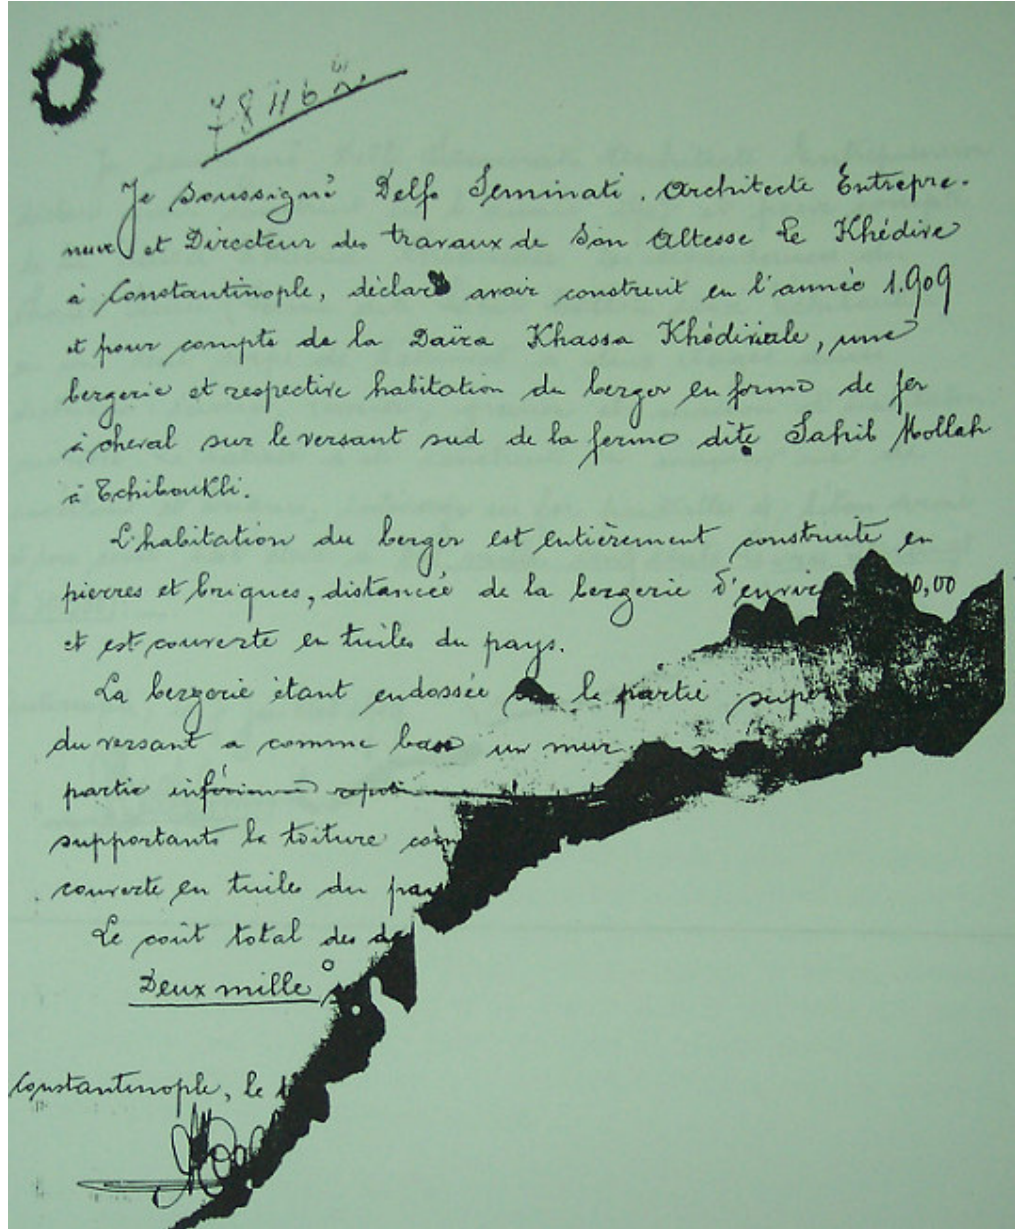 78116
Je soussigné Delfo Seminati. Architecte Entrepre-
neur et Directeur des travaux de Son Altesse le Khédive
à Constantinople, déclare avoir construit en l'année 1.909
et pour compte de la Daïra Khassa Khédiviale, une
bergerie et respective habitation du berger en forme de fer
à cheval sur le versant sud de la ferme dite Sahib Mollah
à Tchiboukli.
L'habitation du berger est entièrement construite en
pierres et briques, distancée de la bergerie d'envir 10,00
et est couverte en tuiles du pays.
La bergerie étant endossée la partie super
du versant a comme base un mur
partie inférieure
supportants la toiture
couverte en tuiles du pay
Le coût total des
Deux mille
Constantinople, le